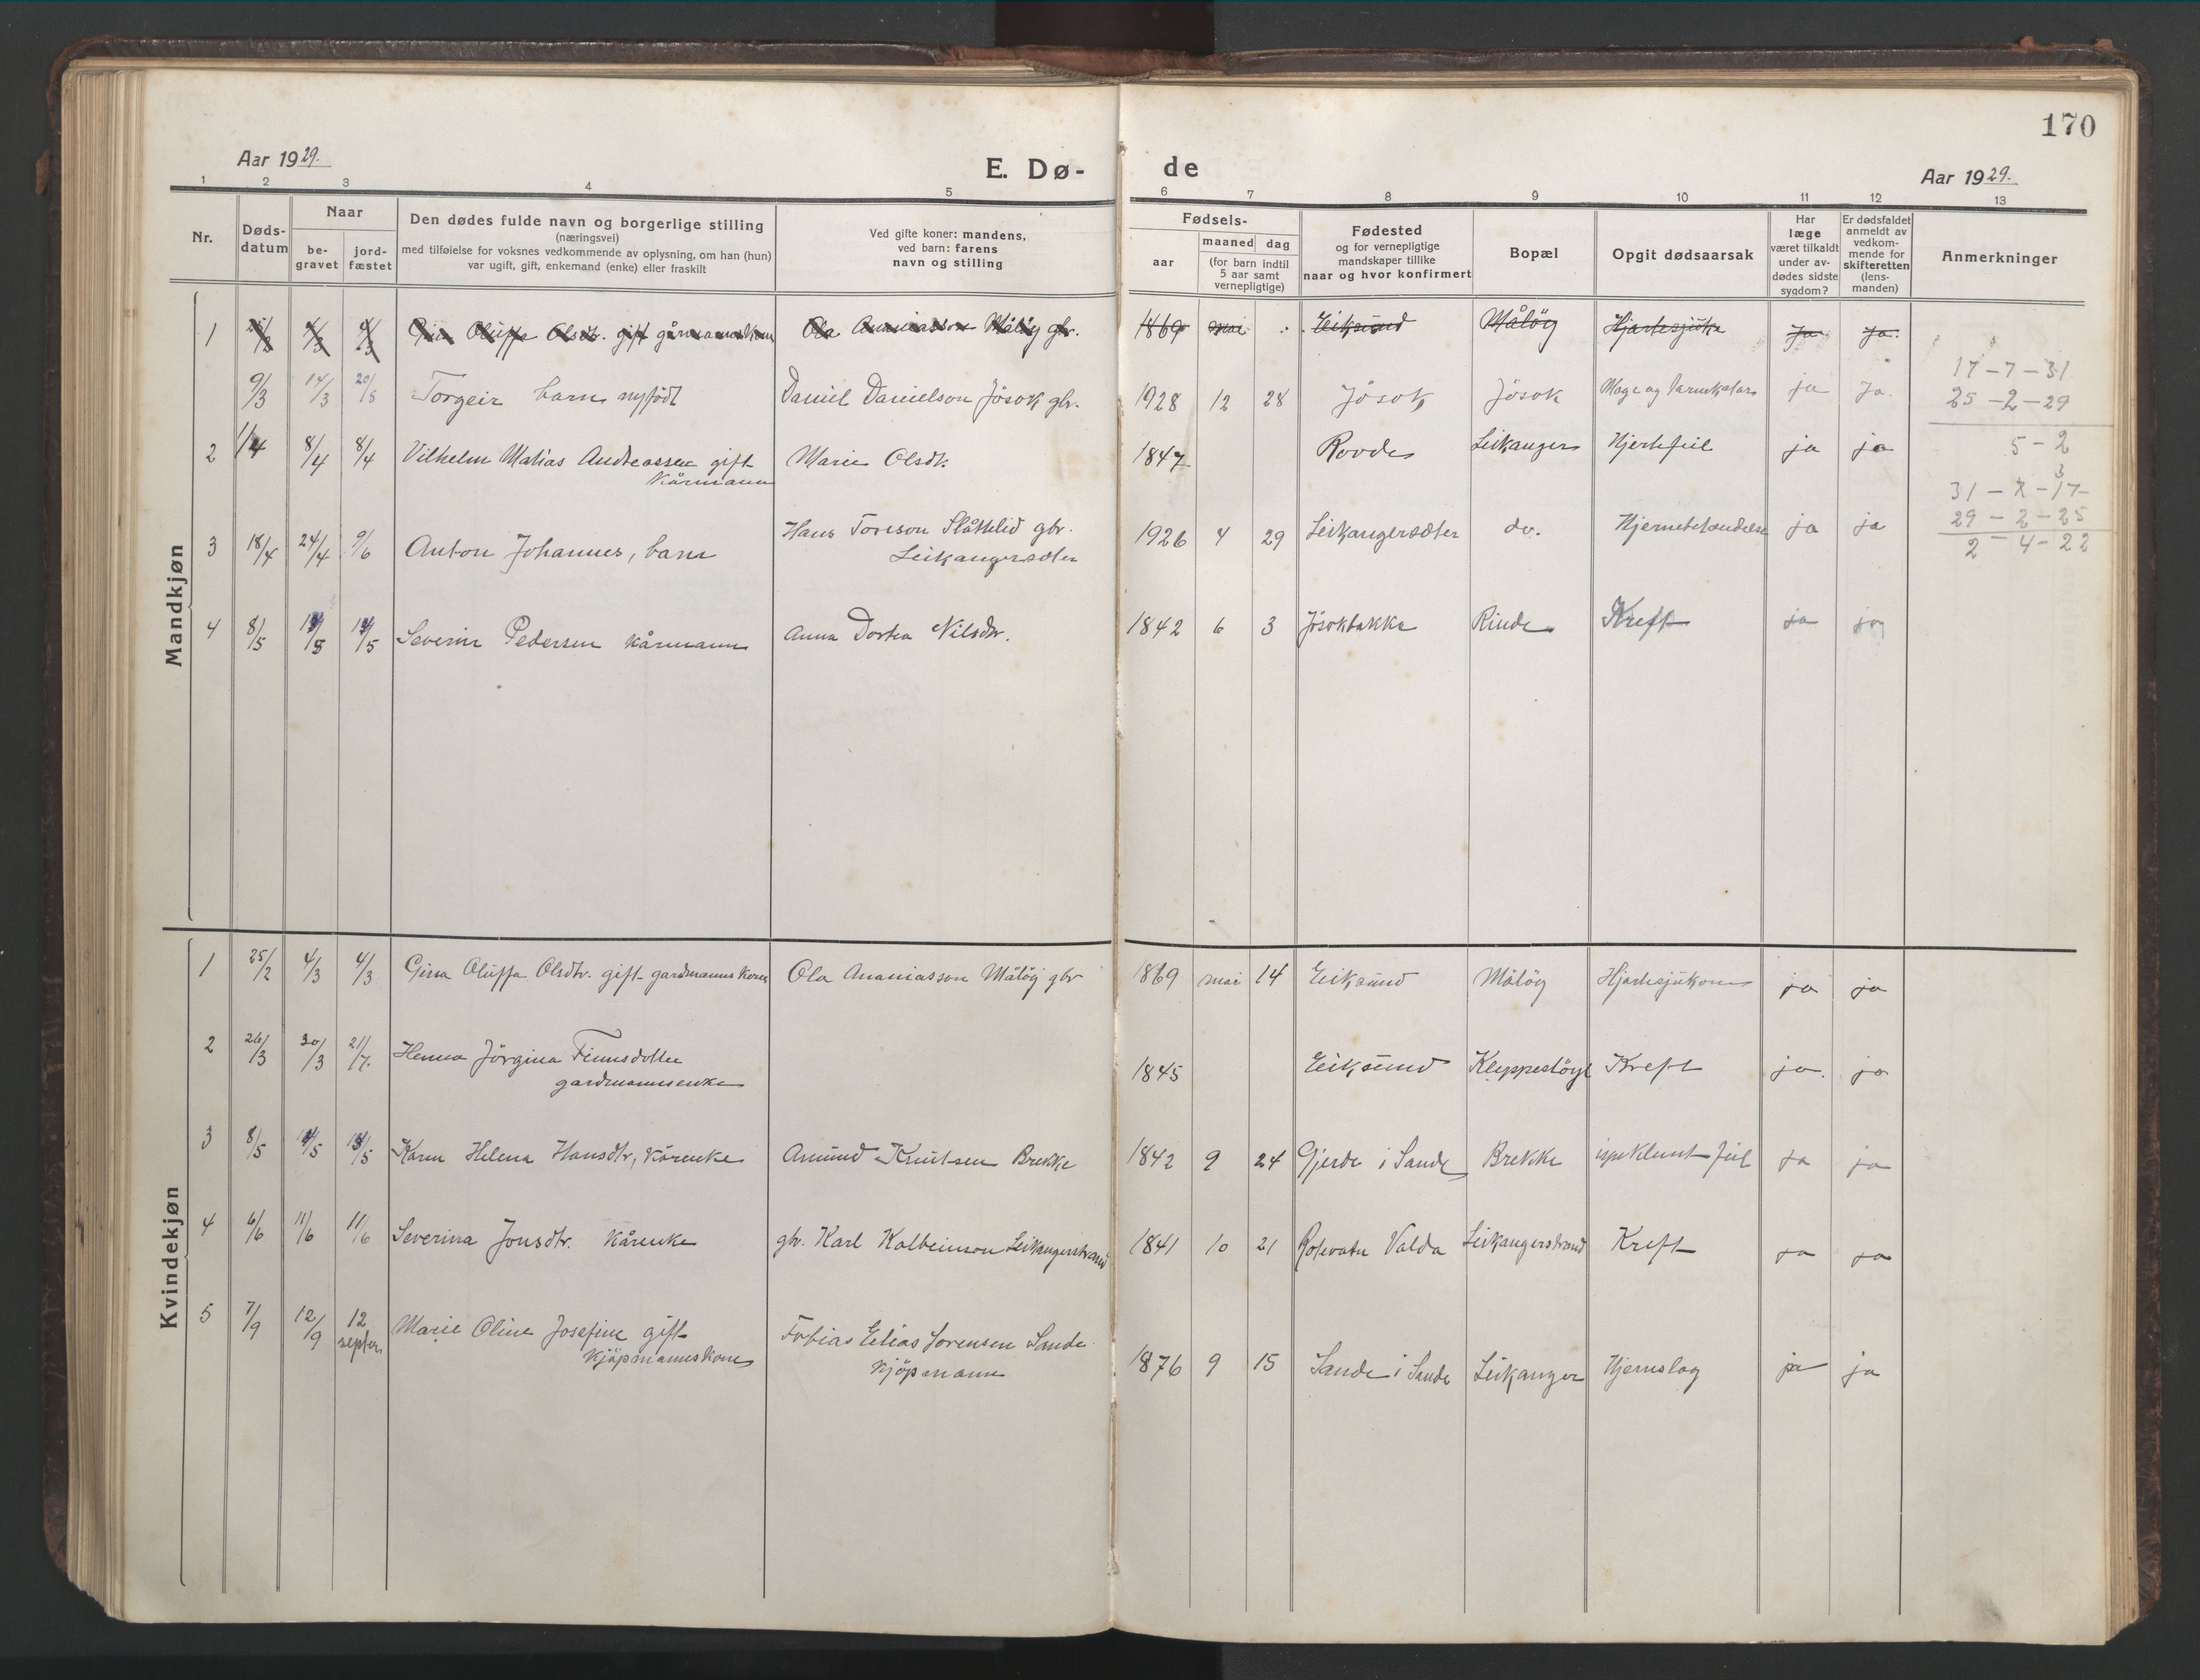 170
Aar 1929.
E. Dø-
de
Aar 1929.
1 2 3 4 5 6 7 8 9 10 11 12 13
Nr.
Døds-
datum
Naar
be-
gravet
jord-
fæstet
Den dødes fulde navn og borgerlige stilling
(næringsvei)
med tilføielse for voksnes vedkommende av oplysning, om han (hun)
var ugift, gift, enkemand (enke) eller fraskilt
Ved gifte koner: mandens,
ved barn: farens
navn og stilling
Fødsels-
aar
maaned dag
(for barn indtil
5 aar samt
vernepligtige)
Fødested
og for vernepligtige
mandskaper tillike
naar og hvor konfirmert
Bopæl
Opgit dødsaarsak
Har
læge
været tilkaldt
under av-
dødes sidste
sygdom?
Er dødsfaldet
anmeldt av
vedkom-
mende for
skifteretten
(lens-
manden)
Anmerkninger
Mandkjøn
1 Oluffa Olsdtr. gift gårmannskona Ola Ananiasson Måløy gbr. 1869 mai Eiksund Måløy Hjartesjuke Ja Ja.
9/3 14/3 20/8 Torgeir barn nyfödt Daniel Danielson Jösok gbr. 1928 12 28 Jösok Jösok Mage og Tarmkatar ja Ja.
17-7-31
25-2-29
2 1/4 8/4 8/4 Vilhelm Matias Andreassen gift Marie Olsdtr. 1847 Rovde Leikanger Hjertefeil ja ja
Kårmann
5-2
3
31-7-17
3 18/4 24/4 9/6 Anton Johannes, barn Hans Toreson Slåttelid gbr. 1926 4 29 Leikangersæter do. Hjernebetændelse ja ja
Leikangersæter
29-2-25
2-4-22
4 8/5 /5 /5 Severin Pedersen kårmann Anna Dortea Nilsdtr. 1842 6 3 Jösokbakke Rinde Kreft ja ja
Kvindekjøn
1 25/2 4/3 4/3 Gina Oluffa Olsdtr. gift gardmannskona Ola Ananiasson Måløy gbr 1869 mai 14 Eiksund Måløy Hjartesjukom ja ja
2 26/3 30/3 21/7. Jörgina Finnsdotter 1845 Eiksund Kleppestöyl Kreft ja. ja
gardmannsenke
3 8/5 /5 /5 Karen Helena Hansdtr, kårenke Amund Knutsen Brekke 1842 9 24 Gjerde i Sande Brekke feil ja ja
4 6/6 11/6 11/6 Severina Jonsdtr. kårenke gbr. Karl Kolbeinson Leikangerstrand 1841 10 21 Rotevatn Volda Leikangerstrand Kreft ja ja
5 7/9 12/9 12 septbr. Marie Oline Josefine gift Tobias Elias Sorensen Sande 1876 9 15 Sande i Sande Leikanger Hjernslag ja ja
kjöpmannskone kjöpmann